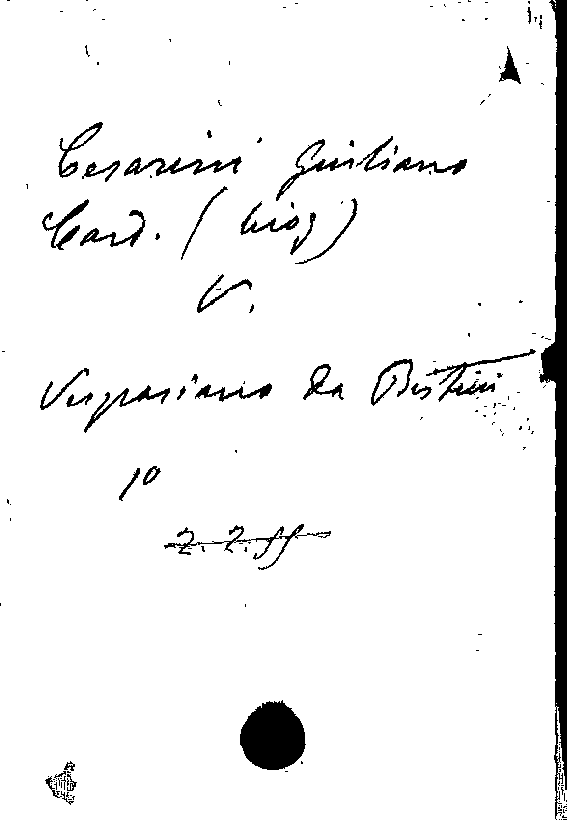 Cesarini Giuliano
Card. (biog)
V.
Vespasiano da Bisticci
1º
2. 2. ff